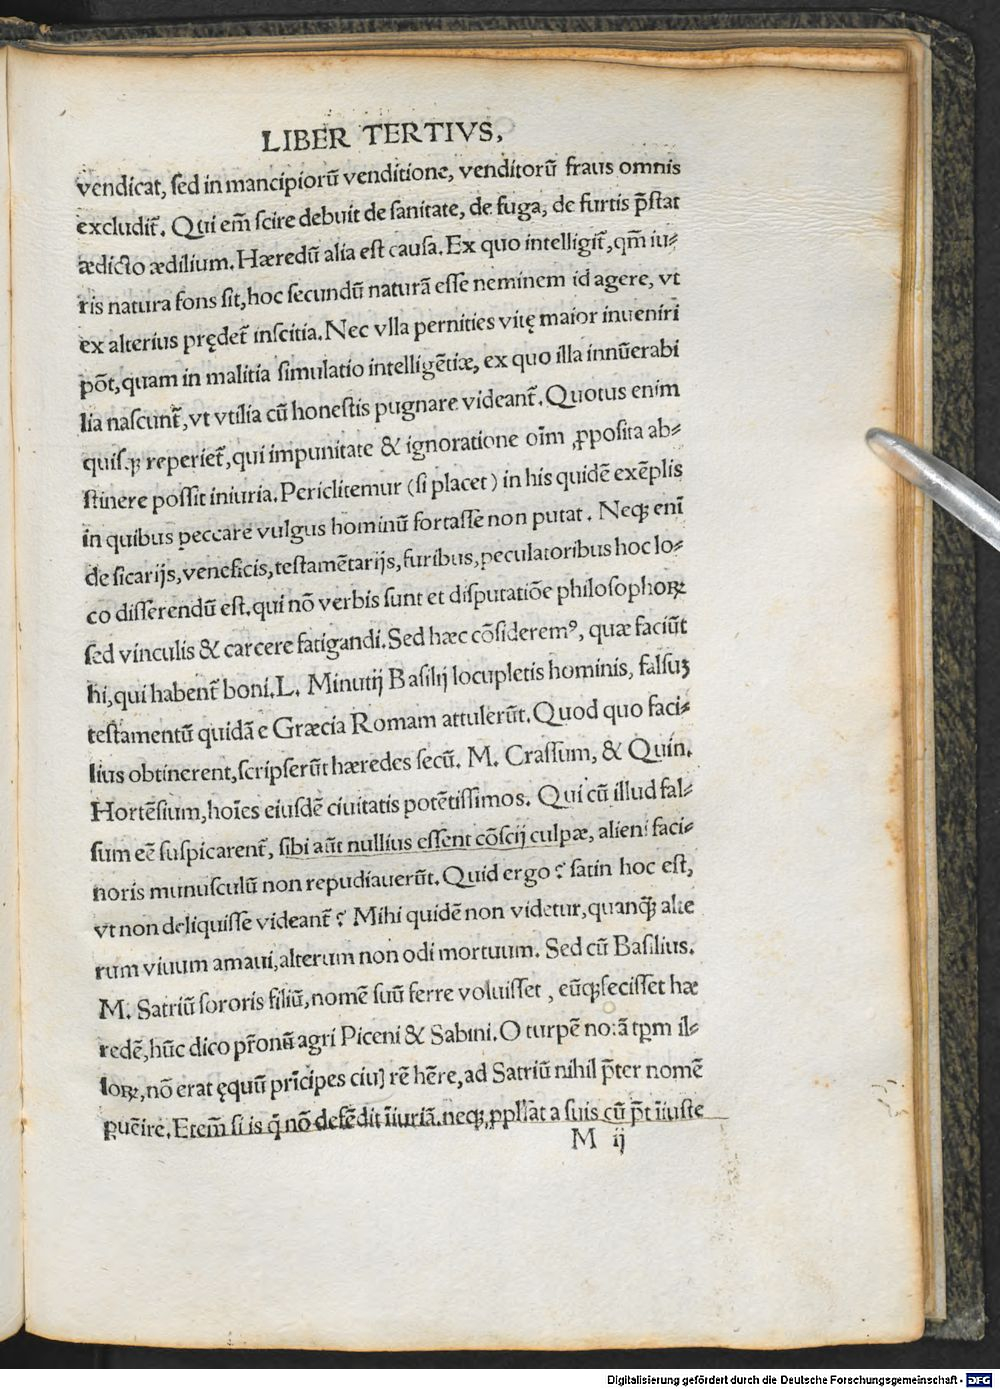 LIBER TERTIVS,
vendicat, sed in mancipiorū venditione, venditorū fraus omnis
excludit᷑. Qui em̄ scire debuit de sanitate, de fuga, de furtis p̄stat
ædicto ædilium. Hæredū alia est causa. Ex quo intelligit᷑, qm̄ iu⸗
ris natura fons sit, hoc secundū naturā esse neminem id agere, vt
ex alterius prędet᷑ inscitia. Nec vlla pernities vitę maior inueniri
pōt, quam in malitia simulatio intelligētiæ, ex quo illa innūerabi
lia nascunt᷑, vt vtilia cū honestis pugnare videant᷑. Quotus enim
quisqꝫ reperiet᷑, qui impunitate & ignoratione oīm ꝓposita ab⸗
stinere possit iniuria. Periclitemur (si placet) in his quidē exēplis
in quibus peccare vulgus hominū fortasse non putat. Neqꝫ enī
de sicarijs, veneficis, testamētarijs, furibus, peculatoribus hoc lo⸗
co disserendū est. qui nō verbis sunt et disputatiōe philosophoꝝ
sed vinculis & carcere fatigandi. Sed hæc cōsideremꝰ, quæ faciūt
hi, qui habent᷑ boni. L. Minutij Basilij locupletis hominis, falsuꝫ
testamentū quidā e Græcia Romam attulerūt. Quod quo faci⸗
lius obtinerent, scripserūt hæredes secū. M. Crassum, & Quin.
Hortēsium, hoīes eiusdē ciuitatis potētissimos. Qui cū illud fal⸗
sum eē suspicarent᷑, sibi aūt nullius essent cōscij culpæ, alieni faci⸗
noris munusculū non repudiauerūt. Quid ergo? satin hoc est,
vt non deliquisse videant᷑? Mihi quidē non videtur, quanqꝫ̄ alte
rum viuum amaui, alterum non odi mortuum. Sed cū Basilius.
M. Satriū sororis filiū, nomē suū ferre voluisset, eūqꝫ fecisset hæ
redē, hūc dico pr̄onū agri Piceni & Sabini. O turpē notā tꝑm il⸗
loꝝ, nō erat ęquū prīcipes ciuꝭ rē hēre, ad Satriū nihil p̄ter nomē
ꝑuēire. Etem̄ si is q̄ nō defēdit īiuriā. neqꝫ ꝓpl̄sat a suis cū p̄t īiuste
M ij
Digitalisierung gefördert durch die Deutsche Forschungsgemeinschaft - DFG